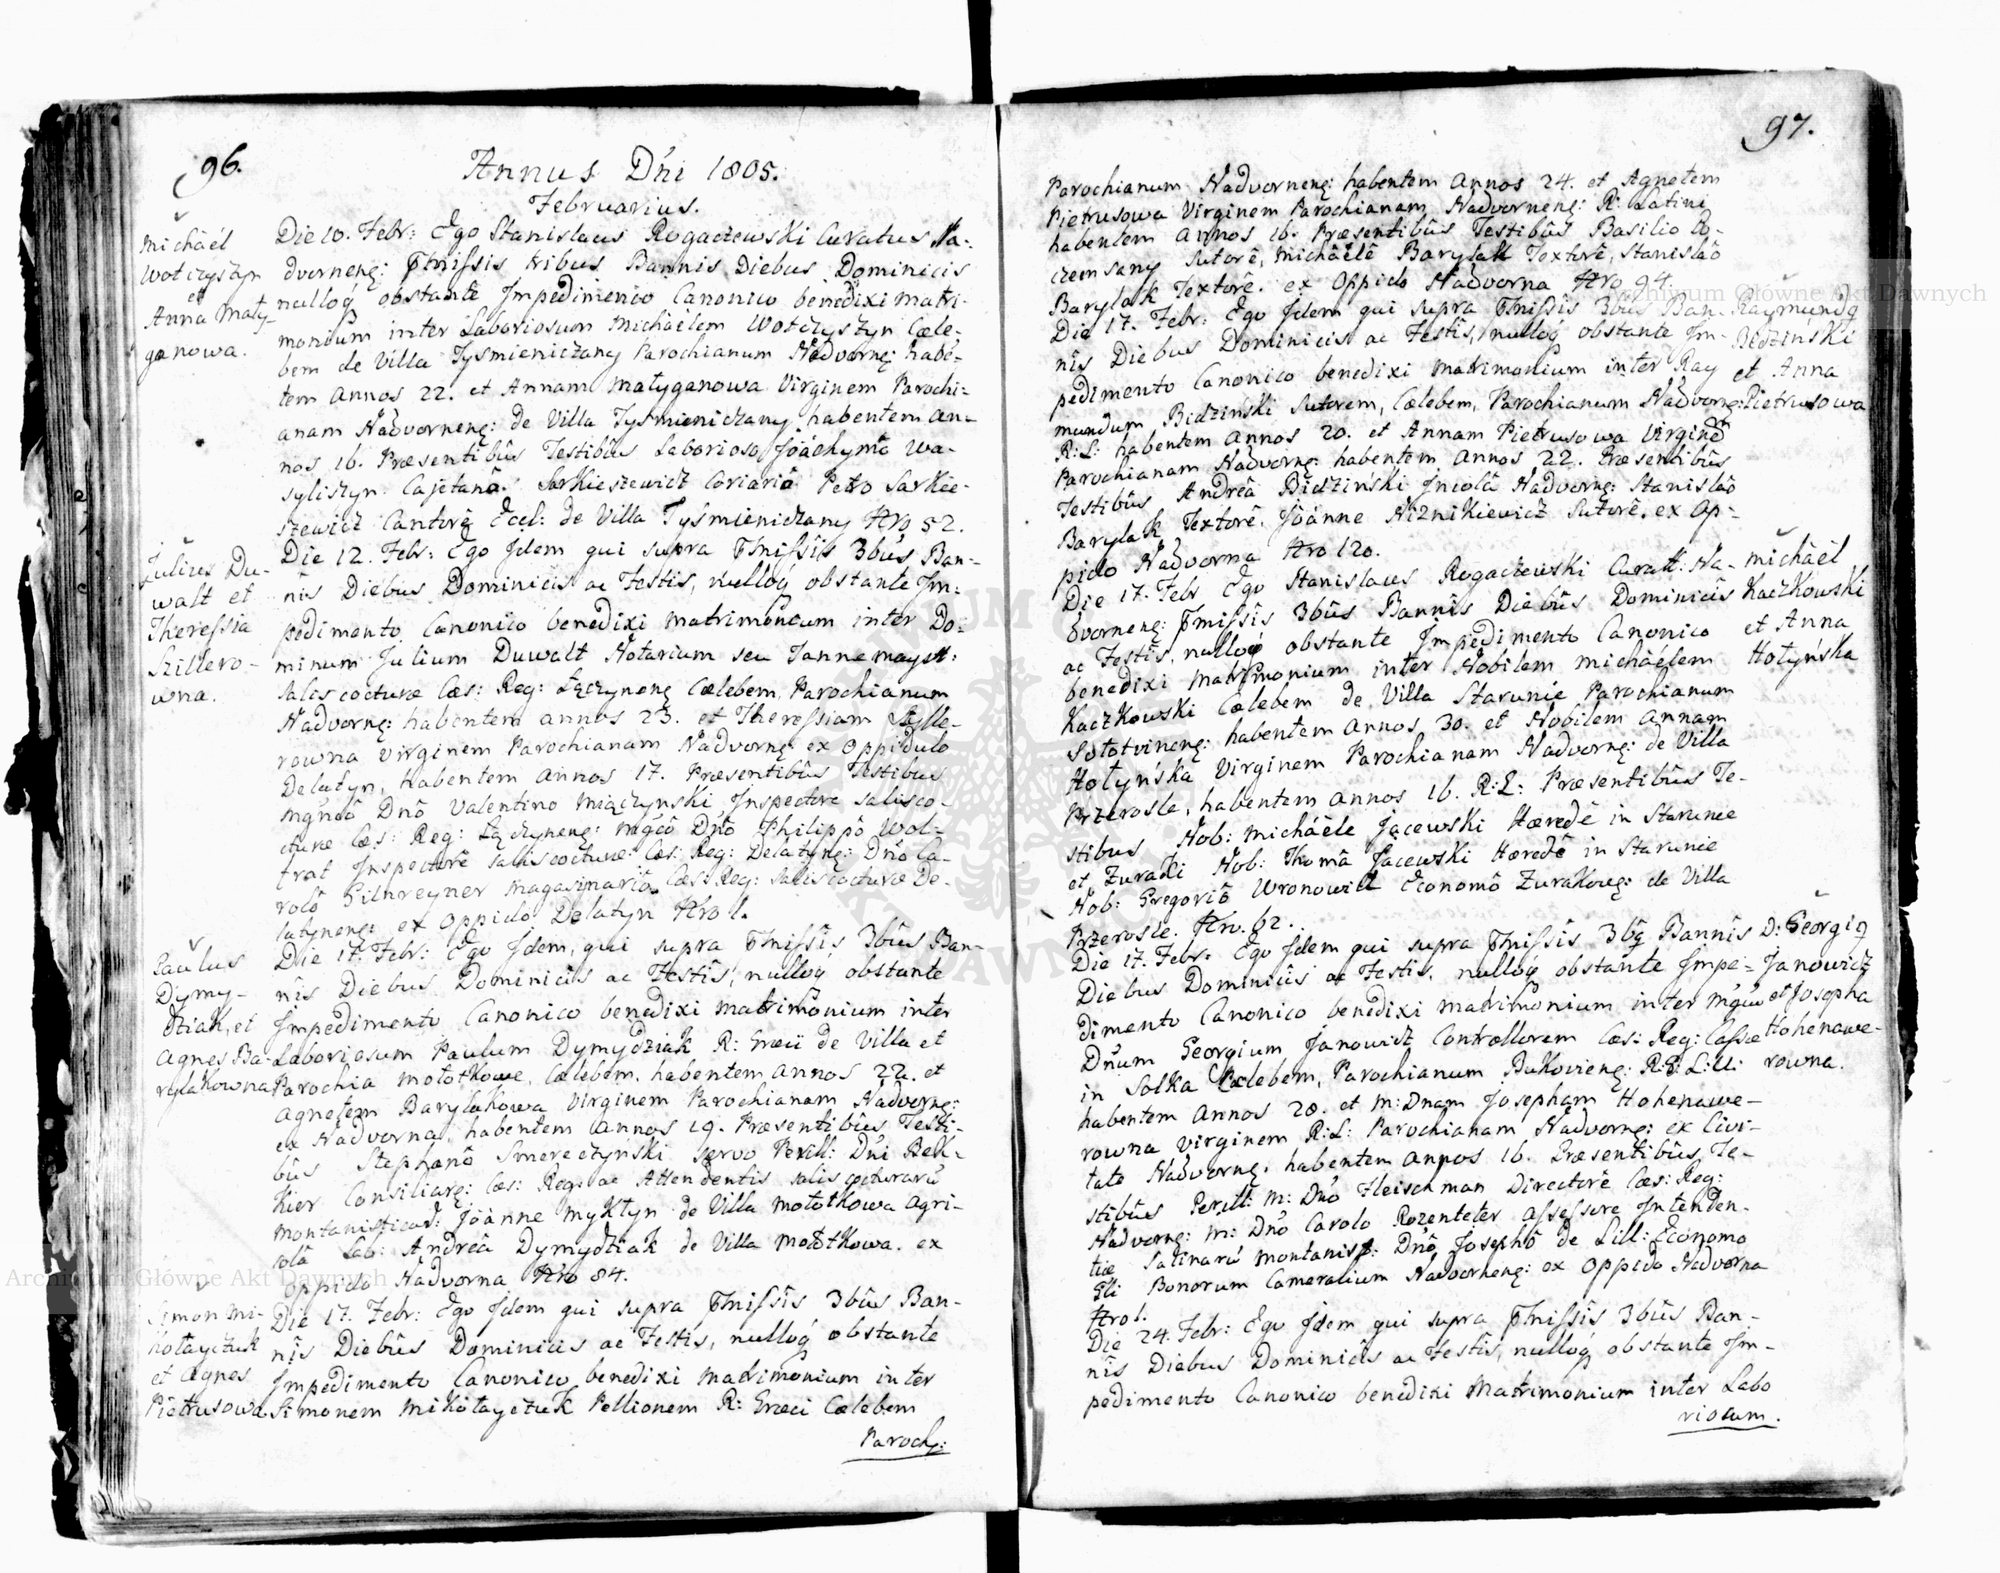 96.
Annus Dn̄i 1805.
Februarius.
Michäel
Wotczyszyn
et
Anna Maty-
ganowa.
Die 10. Febr: Ego Stanislaus Rogaczewski Curatus Na-
dvorneng: p̄missis tribus Bannis Diebus Dominicis
nulloq́ obstante Impedimento Canonico benedixi matri-
monium inter Laboriosum Michäelem Wotczyszyn Cæle-
bem de Villa Tysmieniczany Parochianum Nadvorng: habē-
tem Annos 22. et Annam Matyganowa Virginem Parochi-
anam Nadvorneng: de Villa Tysmieniczany habentem an-
nos 16. Præsentibûs Testibûs Laborioso Jöáchymô Wa-
syliszyn. Cajetanô Sarkieszewicz Coriariô Petro Sarkie-
szewicz Cantorê Eccl: de Villa Tysmieniczany Nro 52.
Julius Du-
walt et
Theressia
Szillero-
wna.
Die 12. Febr: Ego Idem qui supra p̄missîs 3bûs Ban-
nîs Diebus Dominicis ac Festis, nulloq́ obstante Im-
pedimento Canonico benedixi matrimônium inter Do-
minum Julium Duwalt Notarium seu Tannemayst:
saliscocturæ Cæs: Reg: Łęczyneng Cælebem Parochianum
Nadvorng: habentem annos 23. et Theressiam Szylle-
rowna Virginem Parochianam Nadvorng: ex Oppidulo
Delatyn, habentem annos 17. Præsentibûs Testibus
Mgn̄cô Dn̄ô Valentino Miączynski Inspectore Salisco-
cturæ Cæs: Reg: Łęczyneng: mgcô Dn̄ô Philippô Wol-
frat Inspectorê saliscocturæ: Cæs: Reg: Delatyng: Dn̄o Ca-
rolô Gilnreyner Magasinariô Cæs: Reg: saliscocturæ De-
latyneng: ex Oppido Delatyn Nro 1.
Paulus
Dymy-
dziak, et
Agnes Ba-
rylakowna
Die 17. Febr: Ego Idem, qui supra p̄missîs 3bûs Ban-
nîs Diebus Dominicis ac Festîs, nulloq́ obstante
Impedimento Canonico benedixi matrimônium inter
Laboriosum Paulum Dymydziak R: Græci de Villa et
Parochia Motołkowe, Cælebem, habentem Annos 22. et
Agnetem Barylakowa Virginem Parochianam Nadvorng:
ex Nadvorna, habentem Annos 19. Præsentibûs Testi-
bûs Stephanô Smereczynski servo Perill: Dn̄i Rek-
kier Consiliarg: Cæs: Reg: ac Attendentis saliscocturarū
Montanisticar: Jöánne Myktyn de Villa Motołkowa Agri-
colâ Lab: Andreâ Dymydziak de Villa Motołkowa. ex
Oppido Nadvorna Nro 84.
Simon Mi-
kołayczuk
et Agnes
Pietrusowa
Die 17. Febr: Ego Idem qui supra p̄missîs 3bûs Ban-
nîs Diebûs Dominicis ac Festis, nulloq́ obstante
Impedimento Canonico benedixi matrimonium inter
Simonem Mikołayczuk Pellionem R: Græci Cælebem
Paroch:
97.
Parochianum Nadvorneng: habentem Annos 24. et Agnetem
Pietrusowa Virginem Parochianam Nadvorneng: R: Latini
habentem Annos 16. Præsentibûs Testibûs Basilio Po-
czemsany Sutorê, Michäêlê Barylak Textorê, Stanislâo
Barylak Textorê. ex Oppido Nadvorna Nro 94.
Raymundg
Bidzinski
et Anna
Pietrusowa
Die 17. Febr: Ego Idem qui supra p̄missîs 3bus Ban-
nis Diebus Dominicis ac Festîs, nulloq́ obstante Im-
pedimento Canonico benedixi matrimonium inter Ray
mundum Bidzinski Sutorem, Cælebem, Parochianum Nadvorng:
R: L: habentem Annos 20. et Annam Pietrusowa Virginē
Parochianam Nadvorng: habentem Annos 22. Præsentibûs
Testibûs Andreâ Bidzinski Incolâ Nadvorng: Stanislâo
Barylak Textorê, Jöánne Niznikiewicz Sutorê, ex Op-
pido Nadvorna Nro 120.
Michäel
Kaczkowski
et Anna
Hołyńska
Die 17. Febr Ego Stanislaus Rogaczewski Curatt: Na-
dvorneng: p̄missîs 3bûs Bannîs Diebûs Dominicis
ac Festîs, nulloq́ obstante Impedimento Canonico
benedixi matrimonium inter Nobilem Michäélem
Kaczkowski Cælebem de Villa Starunie Parochianum
Sołotvineng: habentem Annos 30. et Nobilem Annam
Hołyńska Virginem Parochianam Nadvorng: de Villa
Przerosle, habentem Annos 16. R: L: Præsentibûs Te-
stibus Nob: Michäêle Jacewski Hæredê in Starunie
et Zuraki Nob: Thomâ Jacewski Hæredê in Starunie
Nob: Gregoriô Wronowicz Economô Zurakowg: de Villa
Przerosle. Nro. 62.
D: Georgig
Janowicz
et Josepha
Hohenawe-
rowna.
Die 17. Febr: Ego Idem qui supra p̄missîs 3bg Bannîs
Diebus Dominicîs ac Festis, nulloq́ obstante Impe-
dimento Canonico benedixi matrimônium inter Mgcū
Dn̄um Georgium Janowicz Contrallorem Cæs: Reg: Cassæ
in Solka Cælebem, Parochianum Bukovieng: R: G: L: U:
habentem Annos 28. et M: Dnam Josepham Hohenawe-
rowna Virginem R: L: Parochianam Nadvorng: ex Civi-
tate Nadvorng. habentem Annos 16. Præsentibûs Te-
stibûs Perill: M: Dn̄o Fleischman Directorê Cæs: Reg:
Nadvorng: M: Dn̄ô Carolo Rozenteter Assessore Intenden-
tiæ Salinarū Montanist: Dn̄ô Josephô de Lill: Economo
Gli Bonorum Cameralium Nadvorneng: ex Oppido Nadvorna
Nro 1.
Die 24. Febr: Ego Idem qui supra p̄missîs 3bûs Ban-
nîs Diebus Dominicîs ac Festis, nulloq́ obstante Im-
pedimento Canonico benedixi Matrimonium inter Labo
riosum.
Archiwum Główne Akt Dawnych
Archiwum Główne Akt Dawnych